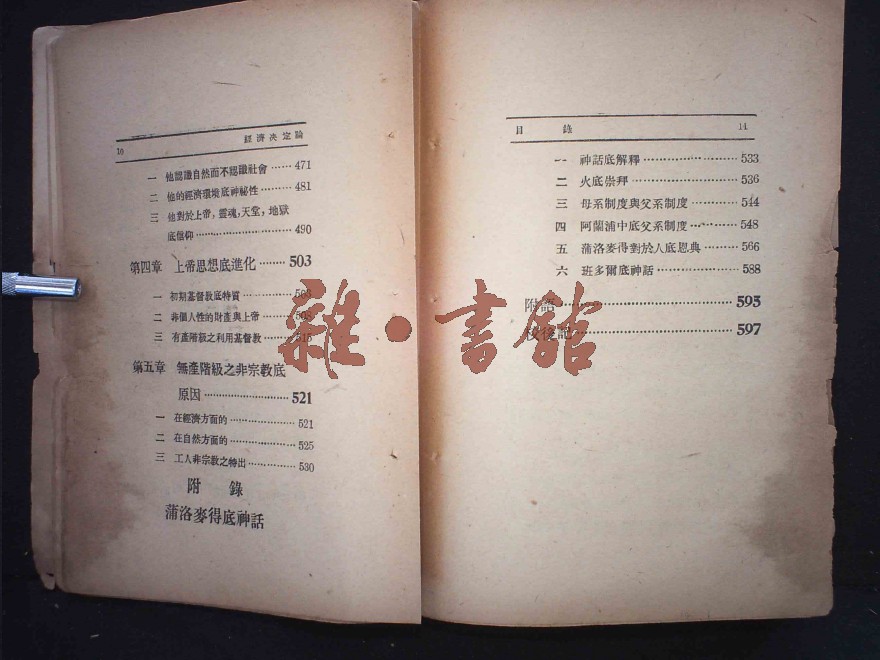 10
經濟决定論
一 他認識自然而不認識社會……471
二 他的經濟環境底神祕性……481
三 他對於上帝，靈魂，天堂，地獄
底信仰……490
第四章 上帝思想底進化……503
一 初期基督教底特質……503
二 非個人性的財產與上帝……508
三 有產階級之利用基督教……515
第五章 無產階級之非宗教底
原因……521
一 在經濟方面的……521
二 在自然方面的……525
三 工人非宗教之特出……530
附 錄
蒲洛麥得底神話
目 錄
11
一 神話底解釋……533
二 火底崇拜……536
三 母系制度與父系制度……544
四 阿蘭浦中底父系制度……548
五 蒲洛麥得對於人底恩典……566
六 班多爾底神話……588
附語……593
校後記……597
雜·書館